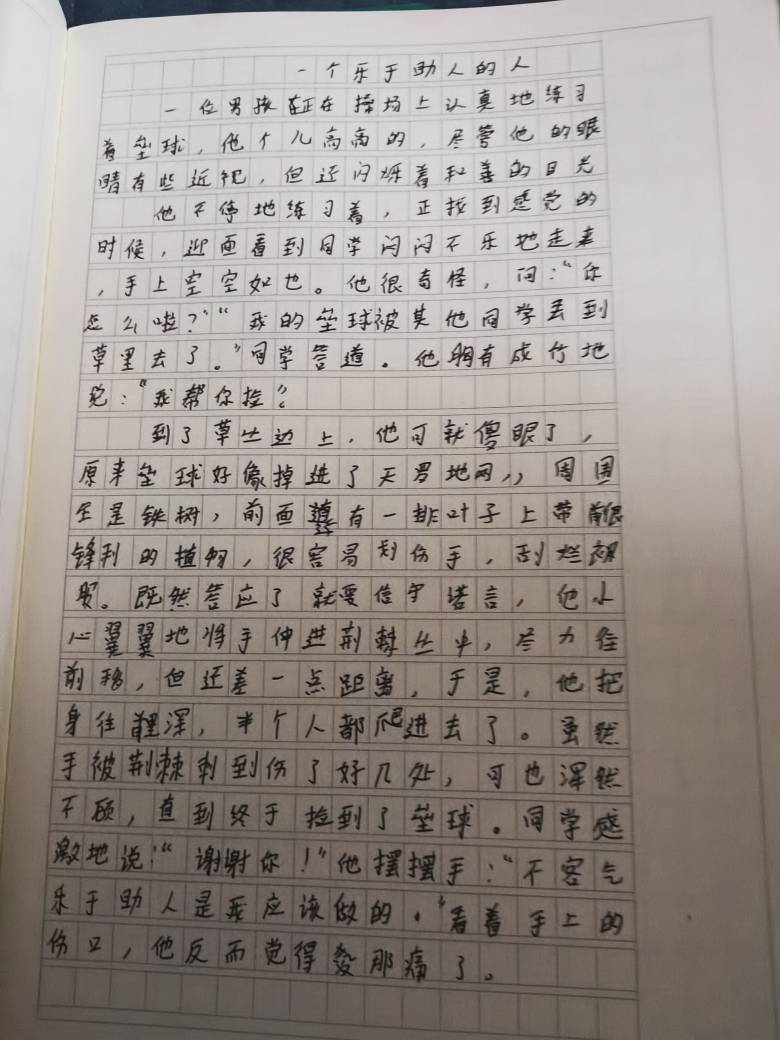 一个乐于助人的人
一位男孩正在操场上认真地练习
着垒球，他个儿高高的，尽管他的眼
睛有些近视，但还闪烁着和善的目光
他不停地练习着，正找到感觉的
时候，迎面看到同学闷闷不乐地走来
，手上空空如也。他很奇怪，问：“你
怎么啦？”“我的垒球被其他同学丢到
草里去了。”同学答道。他胸有成竹地
说：“我帮你捡”
到了草丛边上，他可就傻眼了，
原来垒球好像掉进了天罗地网，，周围
全是铁树，前面还有一排叶子上带着很
锋利的植物，很容易划伤手，刮烂衣
服。既然答应了就要信守诺言，他小
心翼翼地将手伸进荆棘丛中，尽力往
前移，但还差一点距离，于是，他把
身往里深，半个人都爬进去了。虽然
手被荆棘刺到伤了好几处，可也浑然
不顾，直到终于捡到了垒球。同学感
激地说：“谢谢你！”他摆摆手：“不客气
乐于助人是我应该做的。”看着手上的
伤口，他反而觉得没那痛了。